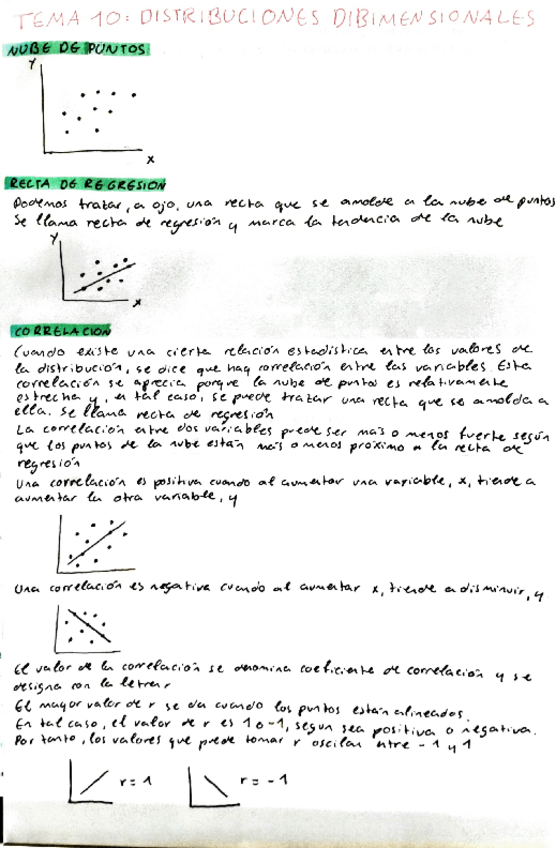 TEMA 10: DISTRIBUCIONES DIBIMENSIONALES
NUBE DE PUNTOS
Y
X
RECTA DE REGRESIÓN
Podemos tratar, a ojo, una recta que se amolde a la nube de puntos
Se llama recta de regresión y marca la tendencia de la nube
Y
X
CORRELACIÓN
Cuando existe una cierta relación estadística entre los valores de
la distribución, se dice que hay correlación entre las variables. Esta
correlación se aprecia porque la nube de puntos es relativamente
estrecha y, en tal caso, se puede tratar una recta que se amolda a
ella. Se llama recta de regresión
La correlación entre dos variables puede ser más o menos fuerte según
que los puntos de la nube están más o menos próximo a la recta de
regresión
Una correlación es positiva cuando al aumentar una variable, x, tiende a
aumentar la otra variable, y
Una correlación es negativa cuando al aumentar x, tiende a disminuir, y
El valor de la correlación se denomina coeficiente de correlación y se
designa con la letra r
El mayor valor de r se da cuando los puntos están alineados.
En tal caso, el valor de r es 1 o -1, según sea positiva o negativa.
Por tanto, los valores que puede tomar r oscilan entre -1 y 1
r = 1
r = -1